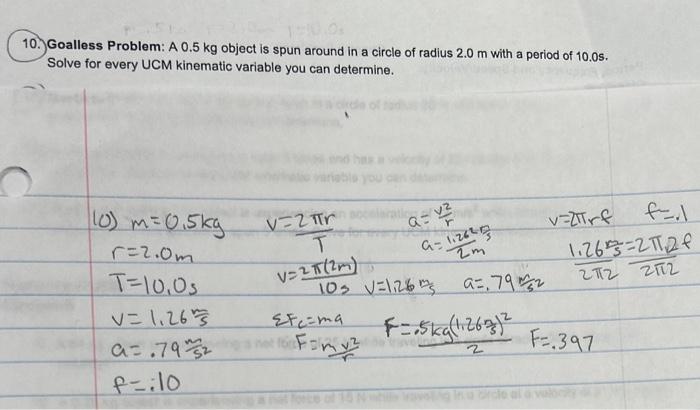 10. Goalless Problem: A 0.5 kg object is spun around in a circle of radius 2.0 m with a period of 10.0s.
Solve for every UCM kinematic variable you can determine.
10) m=0.5kg
r=2.0m
T=10.0s
v=1.26 m/s
a=.79 m/s2
f=.10
v=2πr/T
v=2π(2m)/10s v=1.26 m/s
ΣFc=ma
F=m v²/r
a=v²/r
a=1.26² m/s / 2m
a=.79 m/s2
F=.5kg(1.26 m/s)²/2 F=.397
v=2πrf f=.1
1.26 m/s/2π2 = 2π2f/2π2